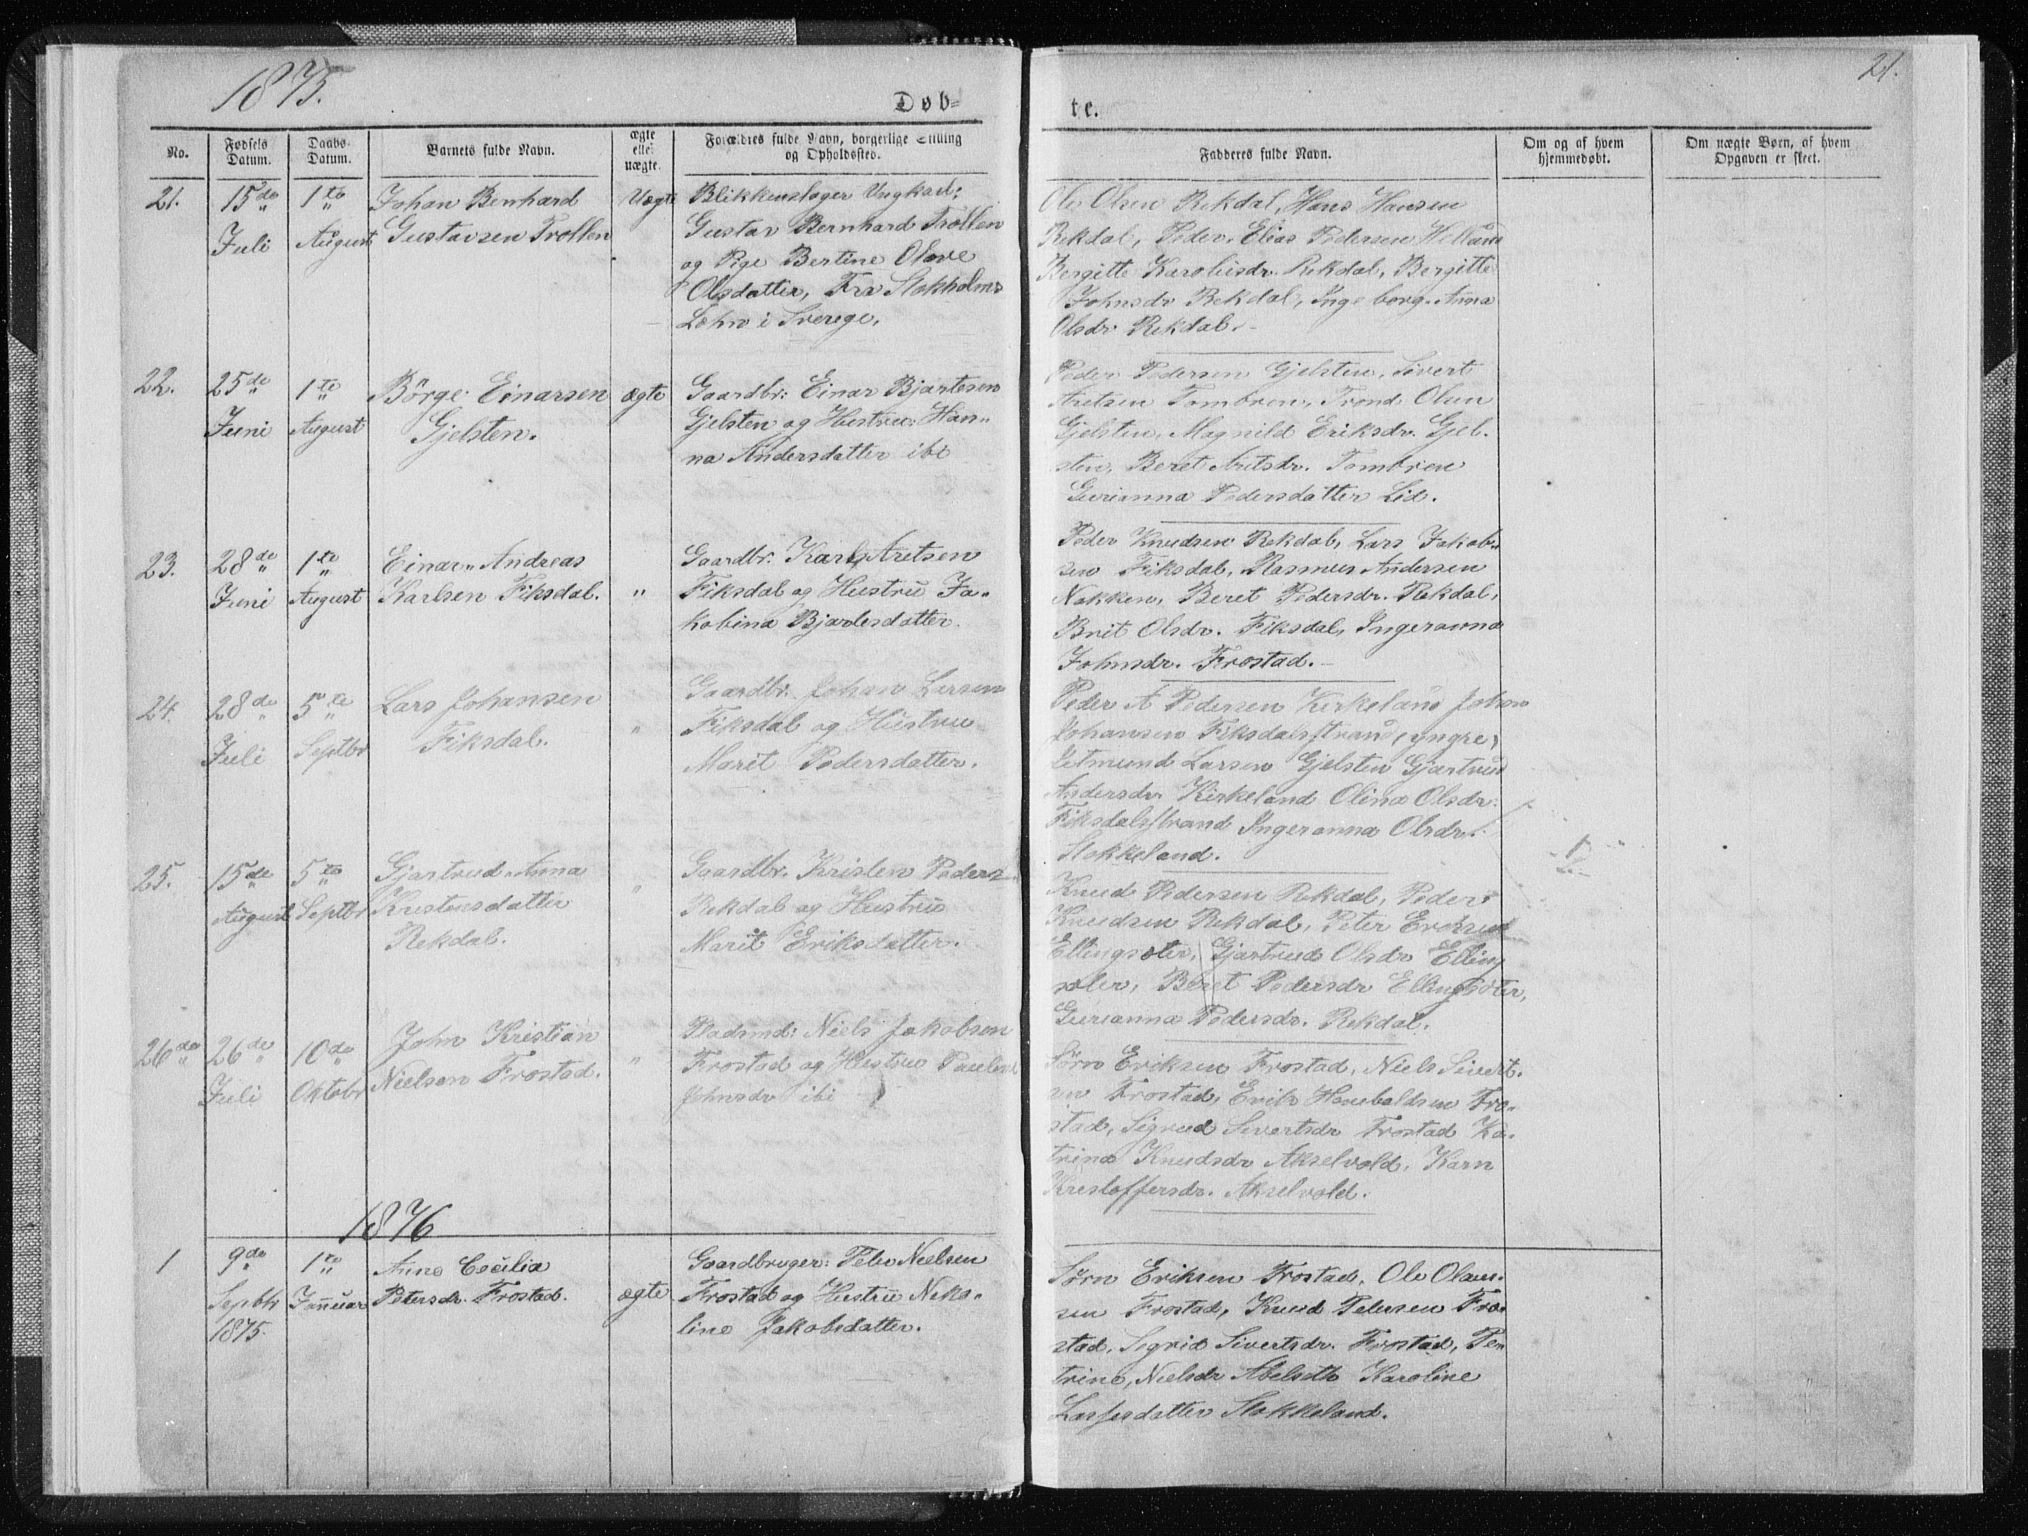 1875.
21.
Døb-
te.
No.
Fødsels Datum.
Daabs-Datum.
Barnets fulde Navn.
ægte eller uægte.
Forældres fulde Navn, borgerlige Stilling og Opholdssted.
Fadderes fulde Navn.
Om og af hvem hjemmedøbt.
Om uægte Børn, af hvem Opgaven er skeet.
21.
15de
Juli
1te
August
Johan Benhard
Gustavsen Trollen
Uægte
Blikkenslager Ungkarl:
Gustav Bernhard Trollen
og Pige Bertine Olave
Olsdatter, Fra Stokholms
Lehn i Sverege.
Ole Olsen Rekdal, Hans Hansen
Rekdal, Peder Elias Pedersen Helland
Bergitte Karolusdr. Rekdal, Bergitte
Johnsdr Rekdal, Ingeborg Anna
Olsdr Rekdal.
22.
25de
Juni
1te
August
Børge Einarsen
Gjelsten.
ægte
Gaardbr: Einar Bjartesen
Gjelsten og Hustru: Han-
na Andersdatter ibi
Peder Pedersen Gjelsten, Sivert
Aretsen Tombren, Trond Olsen
Gjelsten, Magnild Eriksdr. Gjel-
sten, Beret Aretsdr. Tombren
Gurianna Pedersdatter Lid.
23.
28de
Juni
1te
August
Einar Andreas
Karlsen Fiksdal.
"
Gaardbr. Karl Aretsen
Fiksdal og Hustru Ja-
kobina Bjartesdatter.
Peder Knudsen Rekdal, Lars Jakob-
sen Fiksdal, Rasmus Andersen
Nakken, Beret Pedersdr. Rekdal,
Brit Olsdr. Fiksdal, Ingeranna
Johnsdr. Frostad.
24.
28de
Juli
5te
Septbr
Lars Johansen
Fiksdal.
"
Gaardbr. Johan Larsen
Fiksdal og Hustru
Marit Pedersdatter.
Peder A Pedersen Kirkeland Johan
Johansen Fiksdalsstrand, yngre,
Larsen Gjelsten Gjartrud
Andersdr Kirkeland Olina Olsdr.
Fiksdalsstrand Ingeranna Olsdr.
Stokkeland.
25.
15de
August
5te
Septbr
Gjartrud Anna
Kristensdatter
Rekdal.
"
Gaardbr. Kristen Peders
Rekdal og Hustru
Marit Eriksdatter.
Knud Pedersen Rekdal, Peder
Knudsen Rekdal, Peter
Ellingsæter, Gjartrud Olsdr Elling
sæter, Beret Pedersdr Ellingsæter,
Gurianna Pedersdr. Rekdal.
26de
26de
Juli
10de
Oktobr
John Kristian
Nielsen Frostad.
"
Pladsmd: Niels Jakobsen
Frostad og Hustru Pauline
Johnsdr ibi
Sørn Eriksen Frostad, Niels Sivert-
sen Frostad, Erik Frø-
stad, Sigrud Sivertsdr Frostad Ka-
trina Knudsdr Akselvold, Karn
Kristoffersdr. Akselvold.
1876
1
9de
Septbr
1875.
1te
Januar
Anne Cecilia
Petersdr. Frostad.
ægte
Gaardbruger: Peter Nielsen
Frostad og Hustru Niko-
line Jakobsdatter.
Sørn Eriksen Frostad, Ole Olaus-
sen Frostad, Knud Petersen Fro-
stad, Sigrid Sivertsdr. Frostad, Pe-
trine, Nielsdr Abelseth Karoline
Lassesdatter Stokkeland.